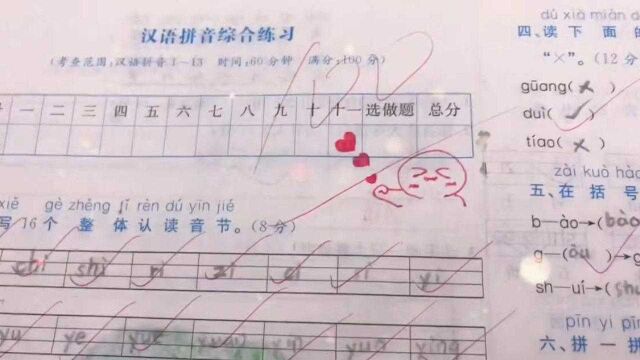 汉语拼音综合练习
(考查范围:汉语拼音1-13 时间:60分钟 满分:100分)
100
一 二 三 四 五 六 七 八 九 十 十一 选做题 总分
gè zhěng tǐ rèn dú yīn jié
写16个整体认读音节。(8分)
chi shi ri zi ci si yi
yu ye yue yuan yin yun ying
dú xià miàn
四、读下面的
“×”。(12分
gūang(×)
duì(✓)
tíao(×)
zài kuò hào
五、在括号
b—ào→(bào
g—(ǒu)→
sh—uí→(shu
pīn yi pīn
六、拼一拼